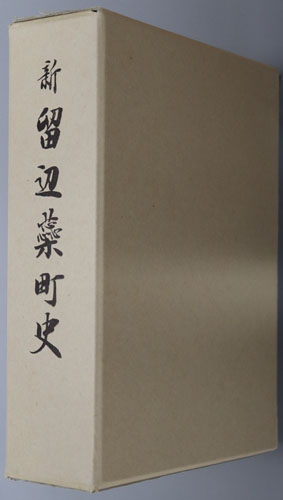 新留辺蘂町史